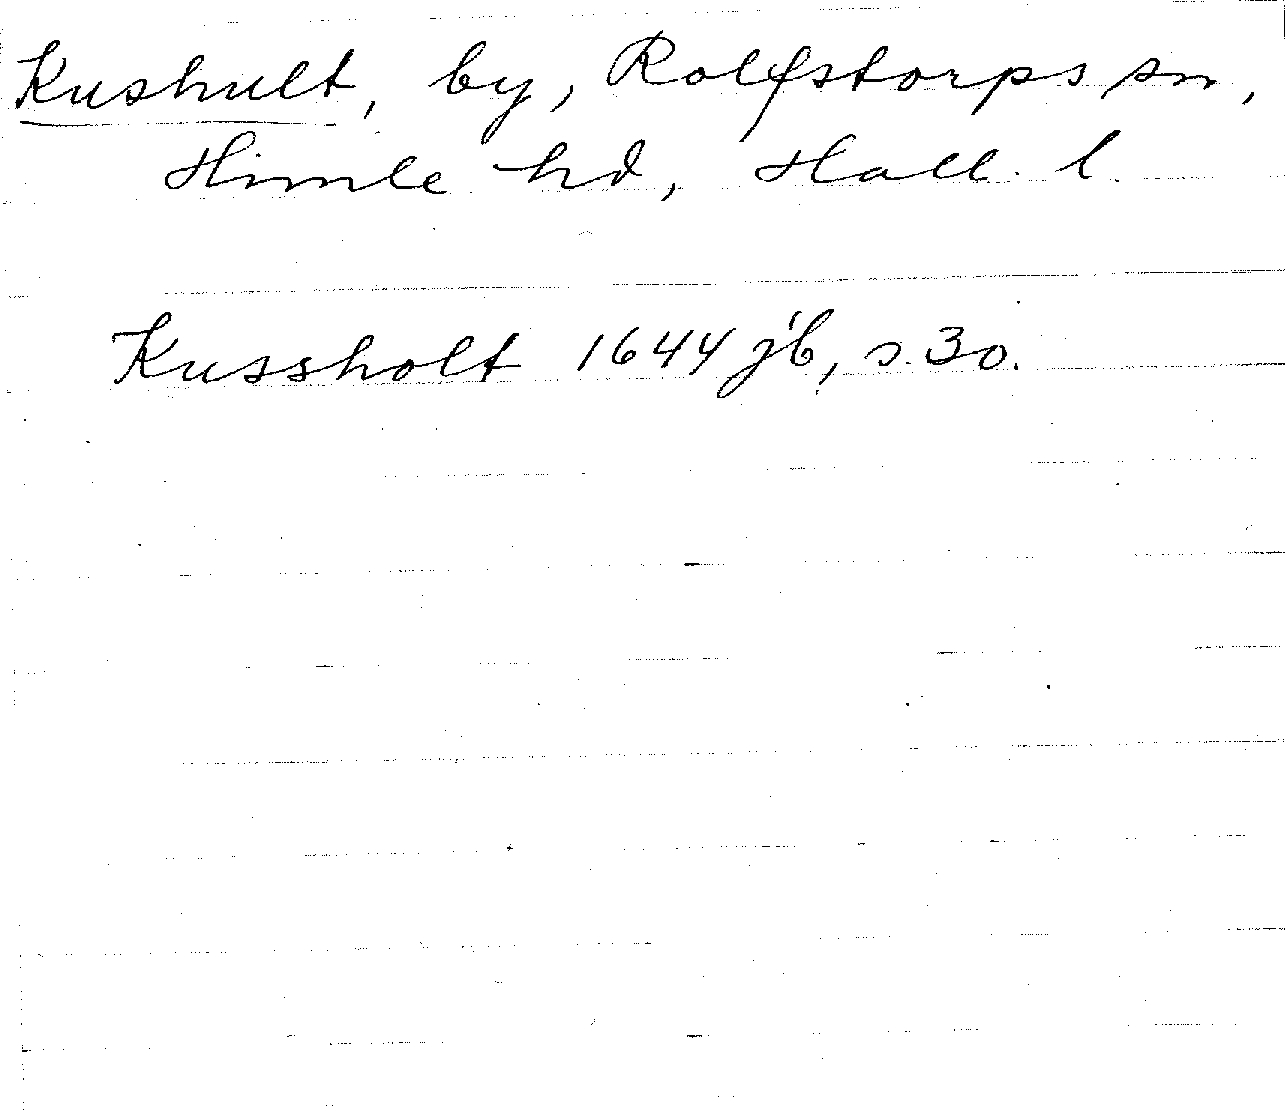 Kushult, by, Rolfstorps sn,
Himle hd, Hall. l.
Kussholt 1644 jb, s. 30.